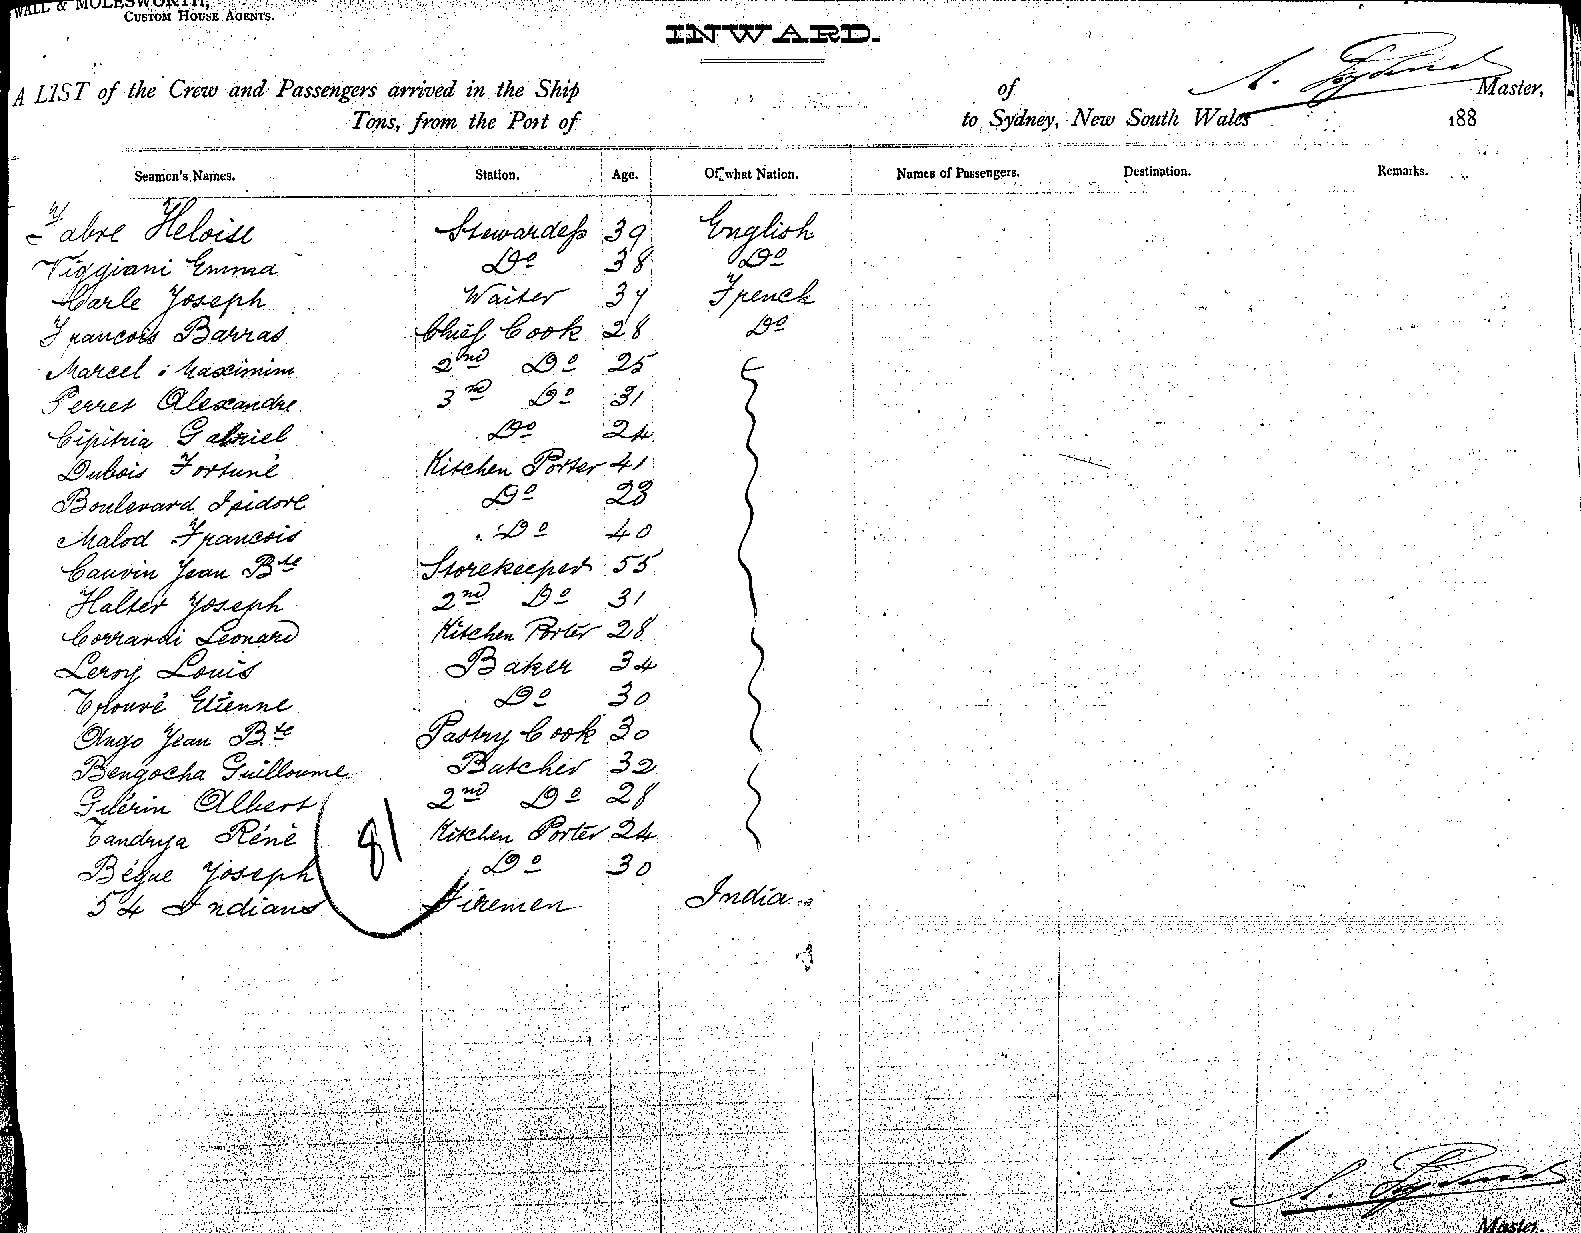 WALL & MOLESWORTH,
CUSTOM HOUSE AGENTS.
INWARD.
A LIST of the Crew and Passengers arrived in the Ship of Master,
Tons, from the Port of to Sydney, New South Wales 188
Seamen's Names. Station. Age. Of what Nation. Names of Passengers. Destination. Remarks.
Fabre Heloise Stewardess 39 English
Viggiani Emma Do 38 Do
Marle Joseph Waiter 37 French
Francois Barras Chief Cook 28 Do
Marcel Maximim 2nd Do 25
Perret Alexandre 3rd Do 31
Cipitria Gabriel Do 24
Dubois Fortuné Kitchen Porter 41
Boulevard Isidore Do 23
Malod Francois Do 40
Cauvin Jean Bte Storekeeper 55
Halter Joseph 2nd Do 31
Corrardi Leonard Kitchen Porter 28
Leroy Louis Baker 34
Etienne Do 30
Ango Jean Bte Pastry Cook 30
Bengocha Guilloume Butcher 32
Guérin Albert 2nd Do 28
Réné Kitchen Porter 24
Bégue Joseph Do 30
81
54 Indians Firemen India
Master.